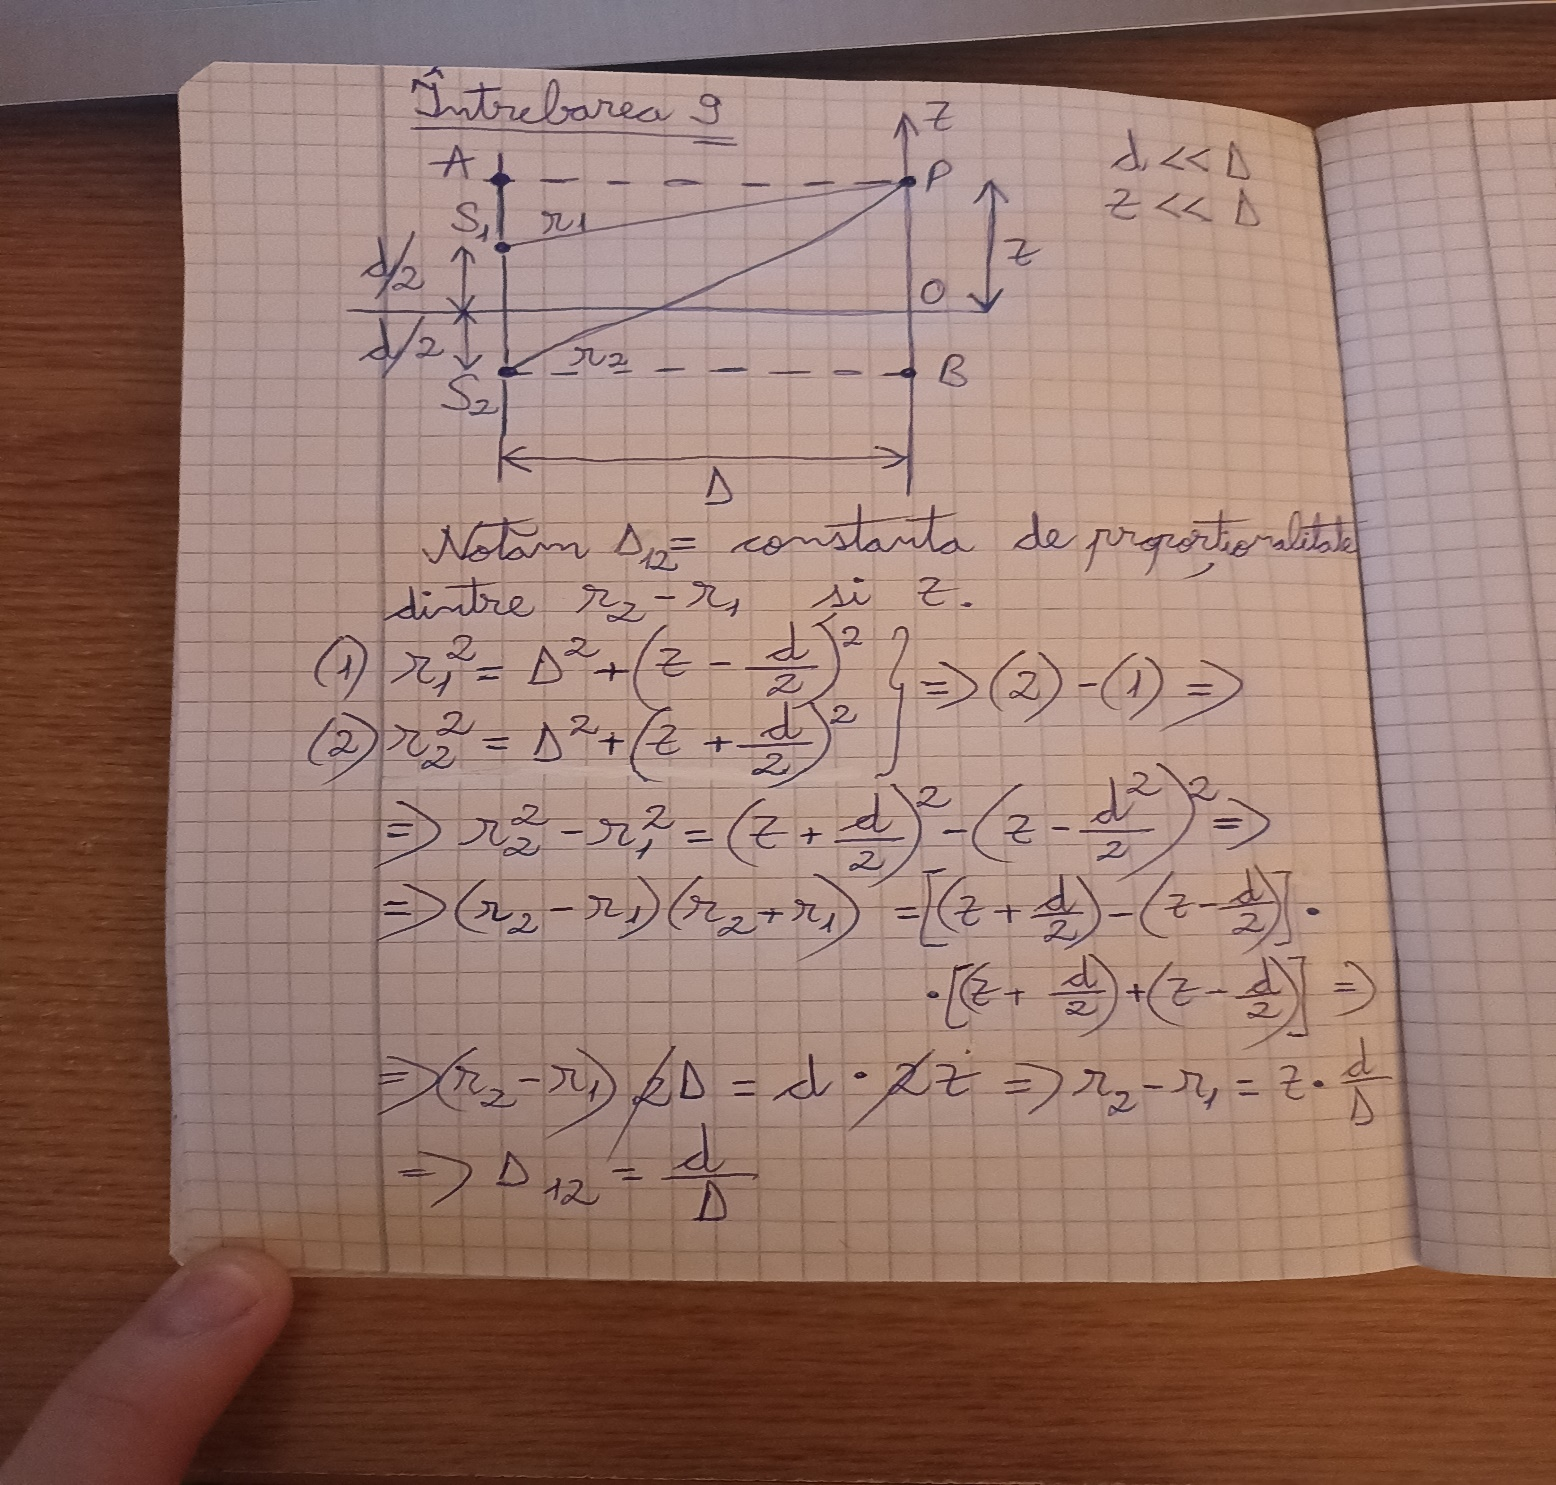 Întrebarea 9
Z
A
P
d << D
z << D
S₁
r1
d/2
z
O
d/2
r₂
S₂
B
D
Notăm D₁₂= constanta de proporționalitate
dintre r₂-r₁ si z.
(1) r₁² = D² + (z - d/2)² } => (2)-(1) =>
(2) r₂² = D² + (z + d/2)²
=> r₂² - r₁² = (z + d/2)² - (z - d²/2)² =>
=> (r₂-r₁)(r₂+r₁) = [(z + d/2) - (z - d/2)] ·
· [(z + d/2) + (z - d/2)] =>
=> (r₂-r₁) 2D = d · 2z => r₂-r₁ = z · d/D
=> D₁₂ = d/D